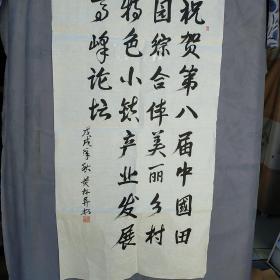 祝贺第八届中國田
园综合体美丽乡村
特色小镇产业发展
高峰论坛
戊戌年秋